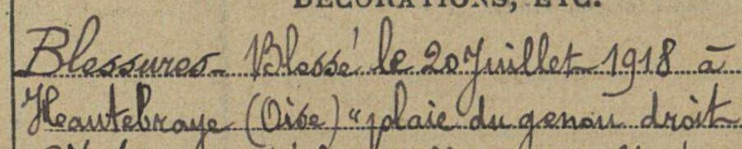 DÉCORATIONS, ETC.
Blessures - Blessé le 20 Juillet 1918 à
Heautebraye (Oise) "plaie du genou droit